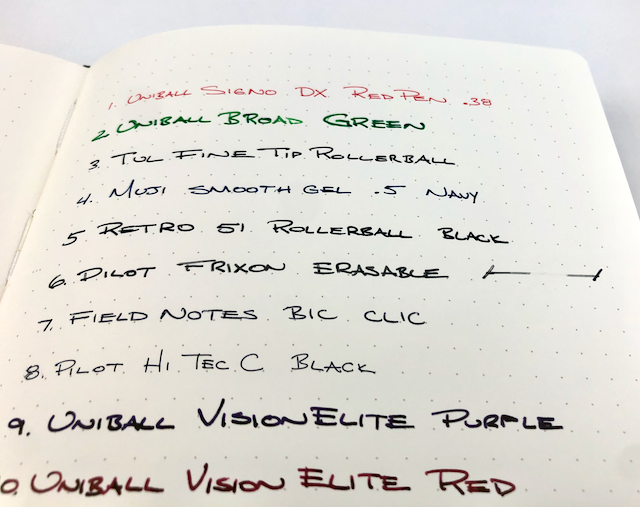 1. UNIBALL SIGNO DX RED PEN .38
2 UNIBALL BROAD GREEN
3. TUL FINE TIP ROLLERBALL
4. MUJI SMOOTH GEL .5 NAVY
5 RETRO 51 ROLLERBALL BLACK
6. PILOT FRIXON ERASABLE
7. FIELD NOTES BIC CLIC
8. PILOT HI TEC C BLACK
9. UNIBALL VISION ELITE PURPLE
0. UNIBALL VISION ELITE RED